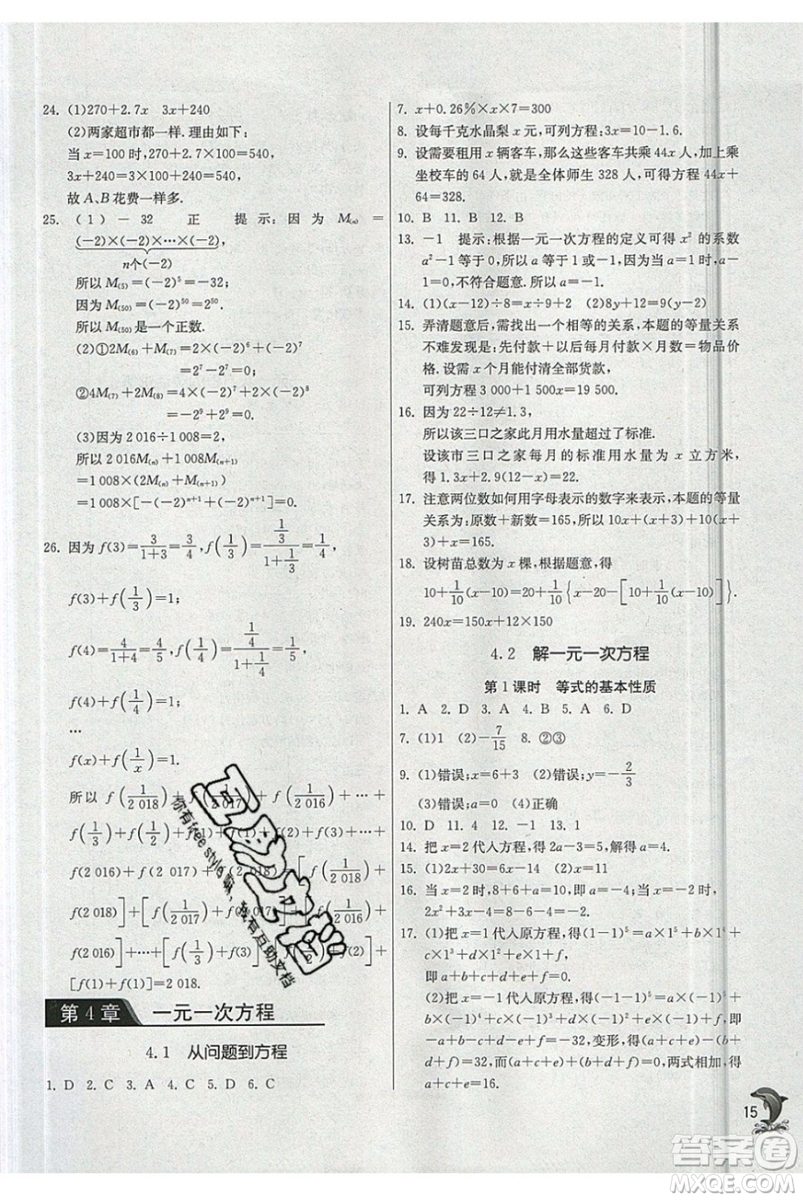 24. (1)270+2.7x　3x+240
(2)两家超市都一样. 理由如下:
当 x=100 时,270+2.7×100=540,
3x+240=3×100+240=540,
故 A、B 花费一样多.
25. (1)－32　正　提示:因为 M₍ₙ₎=
(－2)×(－2)×…×(－2),
n个(－2)
所以 M₍₅₎=(－2)⁵=－32;
因为 M₍₅₀₎=(－2)⁵⁰=2⁵⁰.
所以 M₍₅₀₎是一个正数.
(2)①2M₍₆₎+M₍₇₎=2×(－2)⁶+(－2)⁷
=2⁷－2⁷=0;
②4M₍₇₎+2M₍₈₎=4×(－2)⁷+2×(－2)⁸
=－2⁹+2⁹=0.
(3)因为 2 016÷1 008=2,
所以 2 016M₍ₙ₎+1 008M₍ₙ₊₁₎
=1 008×(2M₍ₙ₎+M₍ₙ₊₁₎)
=1 008×[－(－2)ⁿ⁺¹+(－2)ⁿ⁺¹]=0.
26. 因为 f(3)=3/(1+3)=3/4,f(1/3)=(1/3)/(1+1/3)=1/4,
f(3)+f(1/3)=1;
f(4)=4/(1+4)=4/5,f(1/4)=(1/4)/(1+1/4)=1/5,
f(4)+f(1/4)=1;
…
f(x)+f(1/x)=1.
所以 f(1/2 018)+f(1/2 017)+f(1/2 016)+…+
f(1/3)+f(1/2)+f(1)+f(2)+f(3)+…+
f(2 016)+f(2 017)+f(2 018)=[f(1/2 018)+
f(2 018)]+[f(1/2 017)+f(2 017)]+[f(1/2 016)+
f(2 016)]+…+[f(1/3)+f(3)]+[f(1/2)+f(2)]
+[f(1)+f(1)]=2 018.
第 4 章　一元一次方程
4.1　从问题到方程
1. D　2. C　3. A　4. C　5. D　6. C
7. x+0.26%×x×7=300
8. 设每千克水晶梨 x 元,可列方程:3x=10－1.6.
9. 设需要租用 x 辆客车,那么这些客车共乘 44x 人,加上乘
坐校车的 64 人,就是全体师生 328 人,可列方程为 44x+
64=328.
10. B　11. B　12. B
13. －1　提示:根据一元一次方程的定义可得 x² 的系数
a²－1=0,所以 a 等于 1 或－1,当 a=1 时,x 的系数 a－
1=0,不符合题意.
14. (1)(x÷9)÷8=x÷9+2　(2)8y+4=9(y－2)
15. 弄清题意后,需找出一个相等的关系,本题的等量关系
不难发现是:先付款+以后每月付款×月数=物品价
格. 设需 x 个月能付清全部货款,
可列方程 3 000+1 500x=19 500.
16. 因为 22÷12≠1.3,
所以该三口之家此月用水量超过了标准.
设该市三口之家每月的标准用水量为 x 立方米,
得 1.3x+2.9(12－x)=22.
17. 注意两位数如何用字母表示的数字来表示,本题的等量
关系为:原数+新数=165,所以 10x+(x+1)+10(x+
1)+x=165.
18. 设树苗总数为 x 棵,根据题意,得
10+1/10(x－10)=20+1/10{x－20－[10+1/10(x－10)]}.
19. 240x=150x+12×150
4.2　解一元一次方程
第 1 课时　等式的基本性质
1. A　2. D　3. A　4. B　5. A　6. D
7. (1)1　(2)－7/15　8. ②③
9. (1)错误;x=6+3　(2)错误;y=－2/3
(3)错误;a=0　(4)正确
10. D　11. 4　12. －1　13. 1
14. 把 x=2 代入方程,得 2a－3=5,解得 a=4.
15. (1)2x+30=50　(2)x=11
16. 当 x=2 时,8+6+a=5a－2,解得 a=4,
2x²+x²－4=8－6－4=－2.
17. (1)把 x=1 代入原方程,得(1－1)⁵=a×1⁵+b×1⁴+c×
1³+d×1²+e×1+f,即 a+b+c+d+e+f=0.
(2)把 x=－1 代入原方程,得(－1－1)⁵=a×(－1)⁵+
b×(－1)⁴+c×(－1)³+d×(－1)²+e×(－1)+f,即
－a+b－c+d－e+f=－32,变形得(b+d+f)－
(a+c+e)=－32,又 a+b+c+d+e+f=0,两式相减,
得 a+c+e=16.
15
豆豆文档
你有free style嘛,我有互助文档
答案圈
MXQE.COM